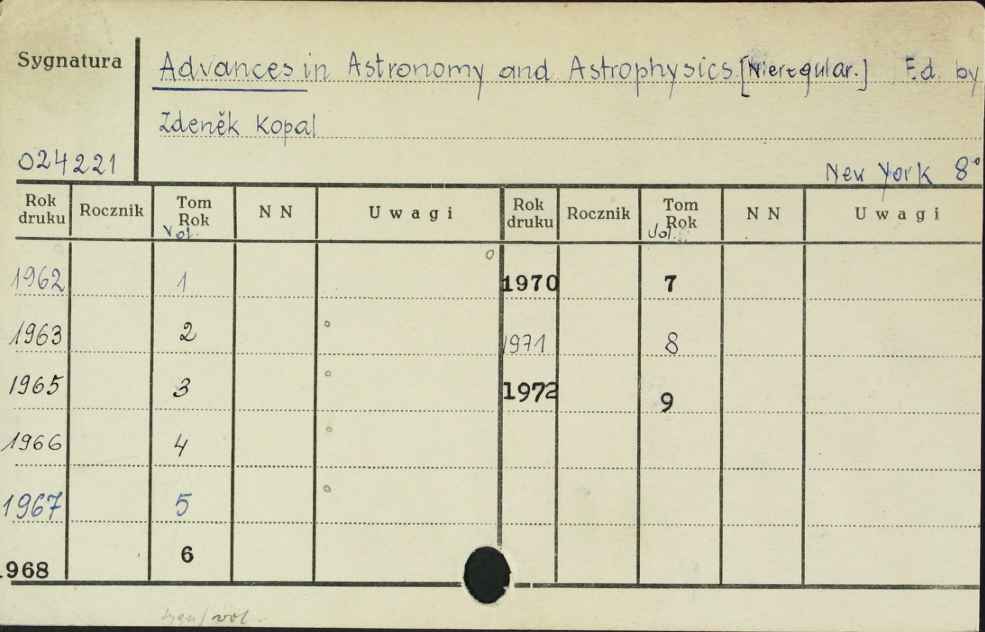 Sygnatura
Advances in Astronomy and Astrophysics [Nieregular.] Ed. by
Zdeněk Kopal
024221
New York 8°
Rok druku Rocznik Tom Rok Vol. N N Uwagi Rok druku Rocznik Tom Rok Vol. N N Uwagi
1962 1 1970 7
1963 2 1971 8
1965 3 1972 9
1966 4
1967 5
1968 6
vol.